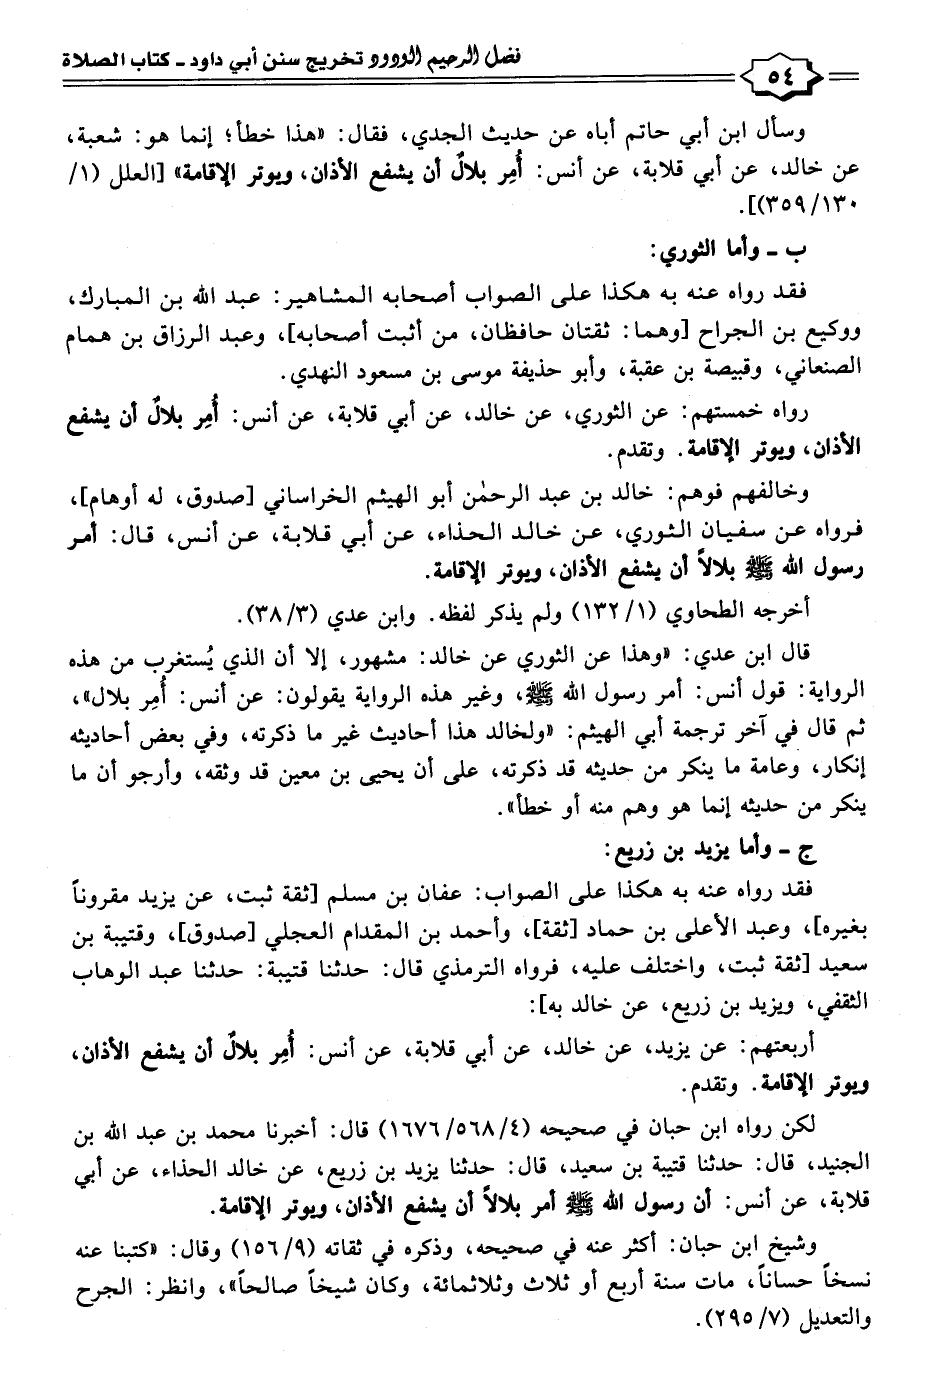 فضل الرحيم الودود تخريج سنن أبي داود ـ كتاب الصلاة
٥٤
وسأل ابن أبي حاتم أباه عن حديث الجدي، فقال: «هذا خطأ؛ إنما هو: شعبة،
عن خالد، عن أبي قلابة، عن أنس: أُمِر بلالٌ أن يشفع الأذان، ويوتر الإقامة» [العلل (١/
١٣٠/٣٥٩)].
ب ـ وأما الثوري:
فقد رواه عنه به هكذا على الصواب أصحابه المشاهير: عبد الله بن المبارك،
ووكيع بن الجراح [وهما: ثقتان حافظان، من أثبت أصحابه]، وعبد الرزاق بن همام
الصنعاني، وقبيصة بن عقبة، وأبو حذيفة موسى بن مسعود النهدي.
رواه خمستهم: عن الثوري، عن خالد، عن أبي قلابة، عن أنس: أُمِر بلالٌ أن يشفع
الأذان، ويوتر الإقامة. وتقدم.
وخالفهم فوهم: خالد بن عبد الرحمٰن أبو الهيثم الخراساني [صدوق، له أوهام]،
فرواه عن سفيان الثوري، عن خالد الحذاء، عن أبي قلابة، عن أنس، قال: أمر
رسول الله ﷺ بلالاً أن يشفع الأذان، ويوتر الإقامة.
أخرجه الطحاوي (١/١٣٢) ولم يذكر لفظه. وابن عدي (٣/٣٨).
قال ابن عدي: «وهذا عن الثوري عن خالد: مشهور، إلا أن الذي يُستغرب من هذه
الرواية: قول أنس: أمر رسول الله ﷺ، وغير هذه الرواية يقولون: عن أنس: أُمِر بلال»،
ثم قال في آخر ترجمة أبي الهيثم: «ولخالد هذا أحاديث غير ما ذكرته، وفي بعض أحاديثه
إنكار، وعامة ما ينكر من حديثه قد ذكرته، على أن يحيى بن معين قد وثقه، وأرجو أن ما
ينكر من حديثه إنما هو وهم منه أو خطأ».
ج ـ وأما يزيد بن زريع:
فقد رواه عنه به هكذا على الصواب: عفان بن مسلم [ثقة ثبت، عن يزيد مقروناً
بغيره]، وعبد الأعلى بن حماد [ثقة]، وأحمد بن المقدام العجلي [صدوق]، وقتيبة بن
سعيد [ثقة ثبت، واختلف عليه، فرواه الترمذي قال: حدثنا قتيبة: حدثنا عبد الوهاب
الثقفي، ويزيد بن زريع، عن خالد به]:
أربعتهم: عن يزيد، عن خالد، عن أبي قلابة، عن أنس: أُمِر بلالٌ أن يشفع الأذان،
ويوتر الإقامة. وتقدم.
لكن رواه ابن حبان في صحيحه (٤/٥٦٨/١٦٧٦) قال: أخبرنا محمد بن عبد الله بن
الجنيد، قال: حدثنا قتيبة بن سعيد، قال: حدثنا يزيد بن زريع، عن خالد الحذاء، عن أبي
قلابة، عن أنس: أن رسول الله ﷺ أمر بلالاً أن يشفع الأذان، ويوتر الإقامة.
وشيخ ابن حبان: أكثر عنه في صحيحه، وذكره في ثقاته (٩/١٥٦) وقال: «كتبنا عنه
نسخاً حساناً، مات سنة أربع أو ثلاث وثلاثمائة، وكان شيخاً صالحاً»، وانظر: الجرح
والتعديل (٧/٢٩٥).